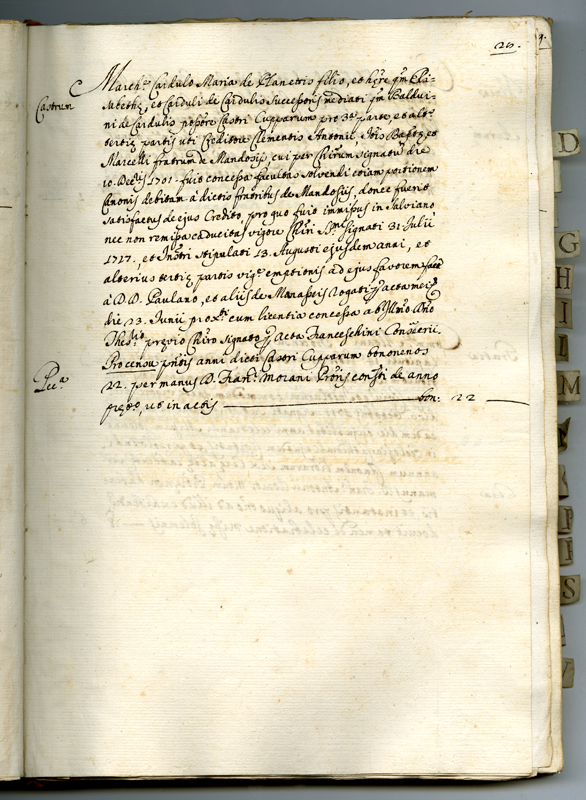 20.
March.e Cardulo Maria de Planettis filio, et hęre qm Eli-
Castrum sabethę, et Carduli de Cardulis Successoris mediati qm Baldui-
ni de Cardulis pos̃sore Castri Cupparum pro 3ᵃ parte, et alt.
tertię partis uti Creditore Clementis Antonii, et
Marcelli fratrum de Mandosijs, cui per signatum die
10. Decĩs 1701. fuit concessa facultas solvendi etiam portionem
Canonis debitam à dictis fratribus de Mandosijs, donec fuerit
satisfactus de ejus Credito, pro quo fuit immissus in Salviano,
nec non remissa caducitas vigore signati 31. Julii
1717., et Instri stipulati 13. Augusti ejusdem anni, et
alterius tertię partis vig.e emptionis ad ejus favorem fact
à D. D. Paulano, et aliis de Manasseis rogati actamei
die 23. Junii prox. cum licentia concessa ab Illmo Dno
Thes. prævio signato Acta Franceschini
Pro censu pñtis anni dicti Castri Cupparum bononenos
Pec.ᵃ 22. per manus D. Fran.ci Morani de anno
ut in actis bon: 22
D
G
H
I
L
M
P
P
S
V